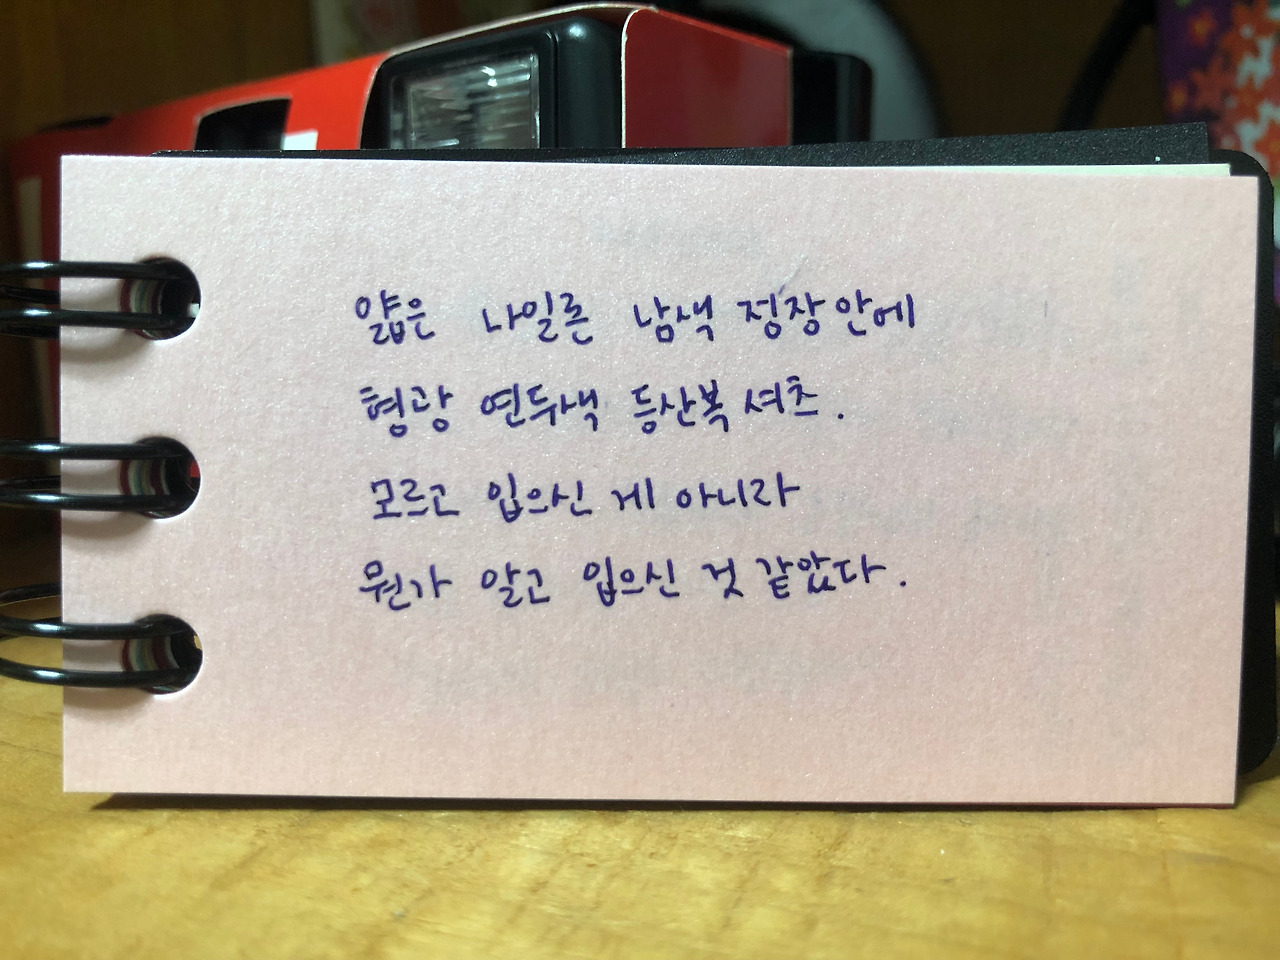 얇은 나일론 남색 정장 안에
형광 연두색 등산복 셔츠.
모르고 입으신 게 아니라
뭔가 알고 입으신 것 같았다.